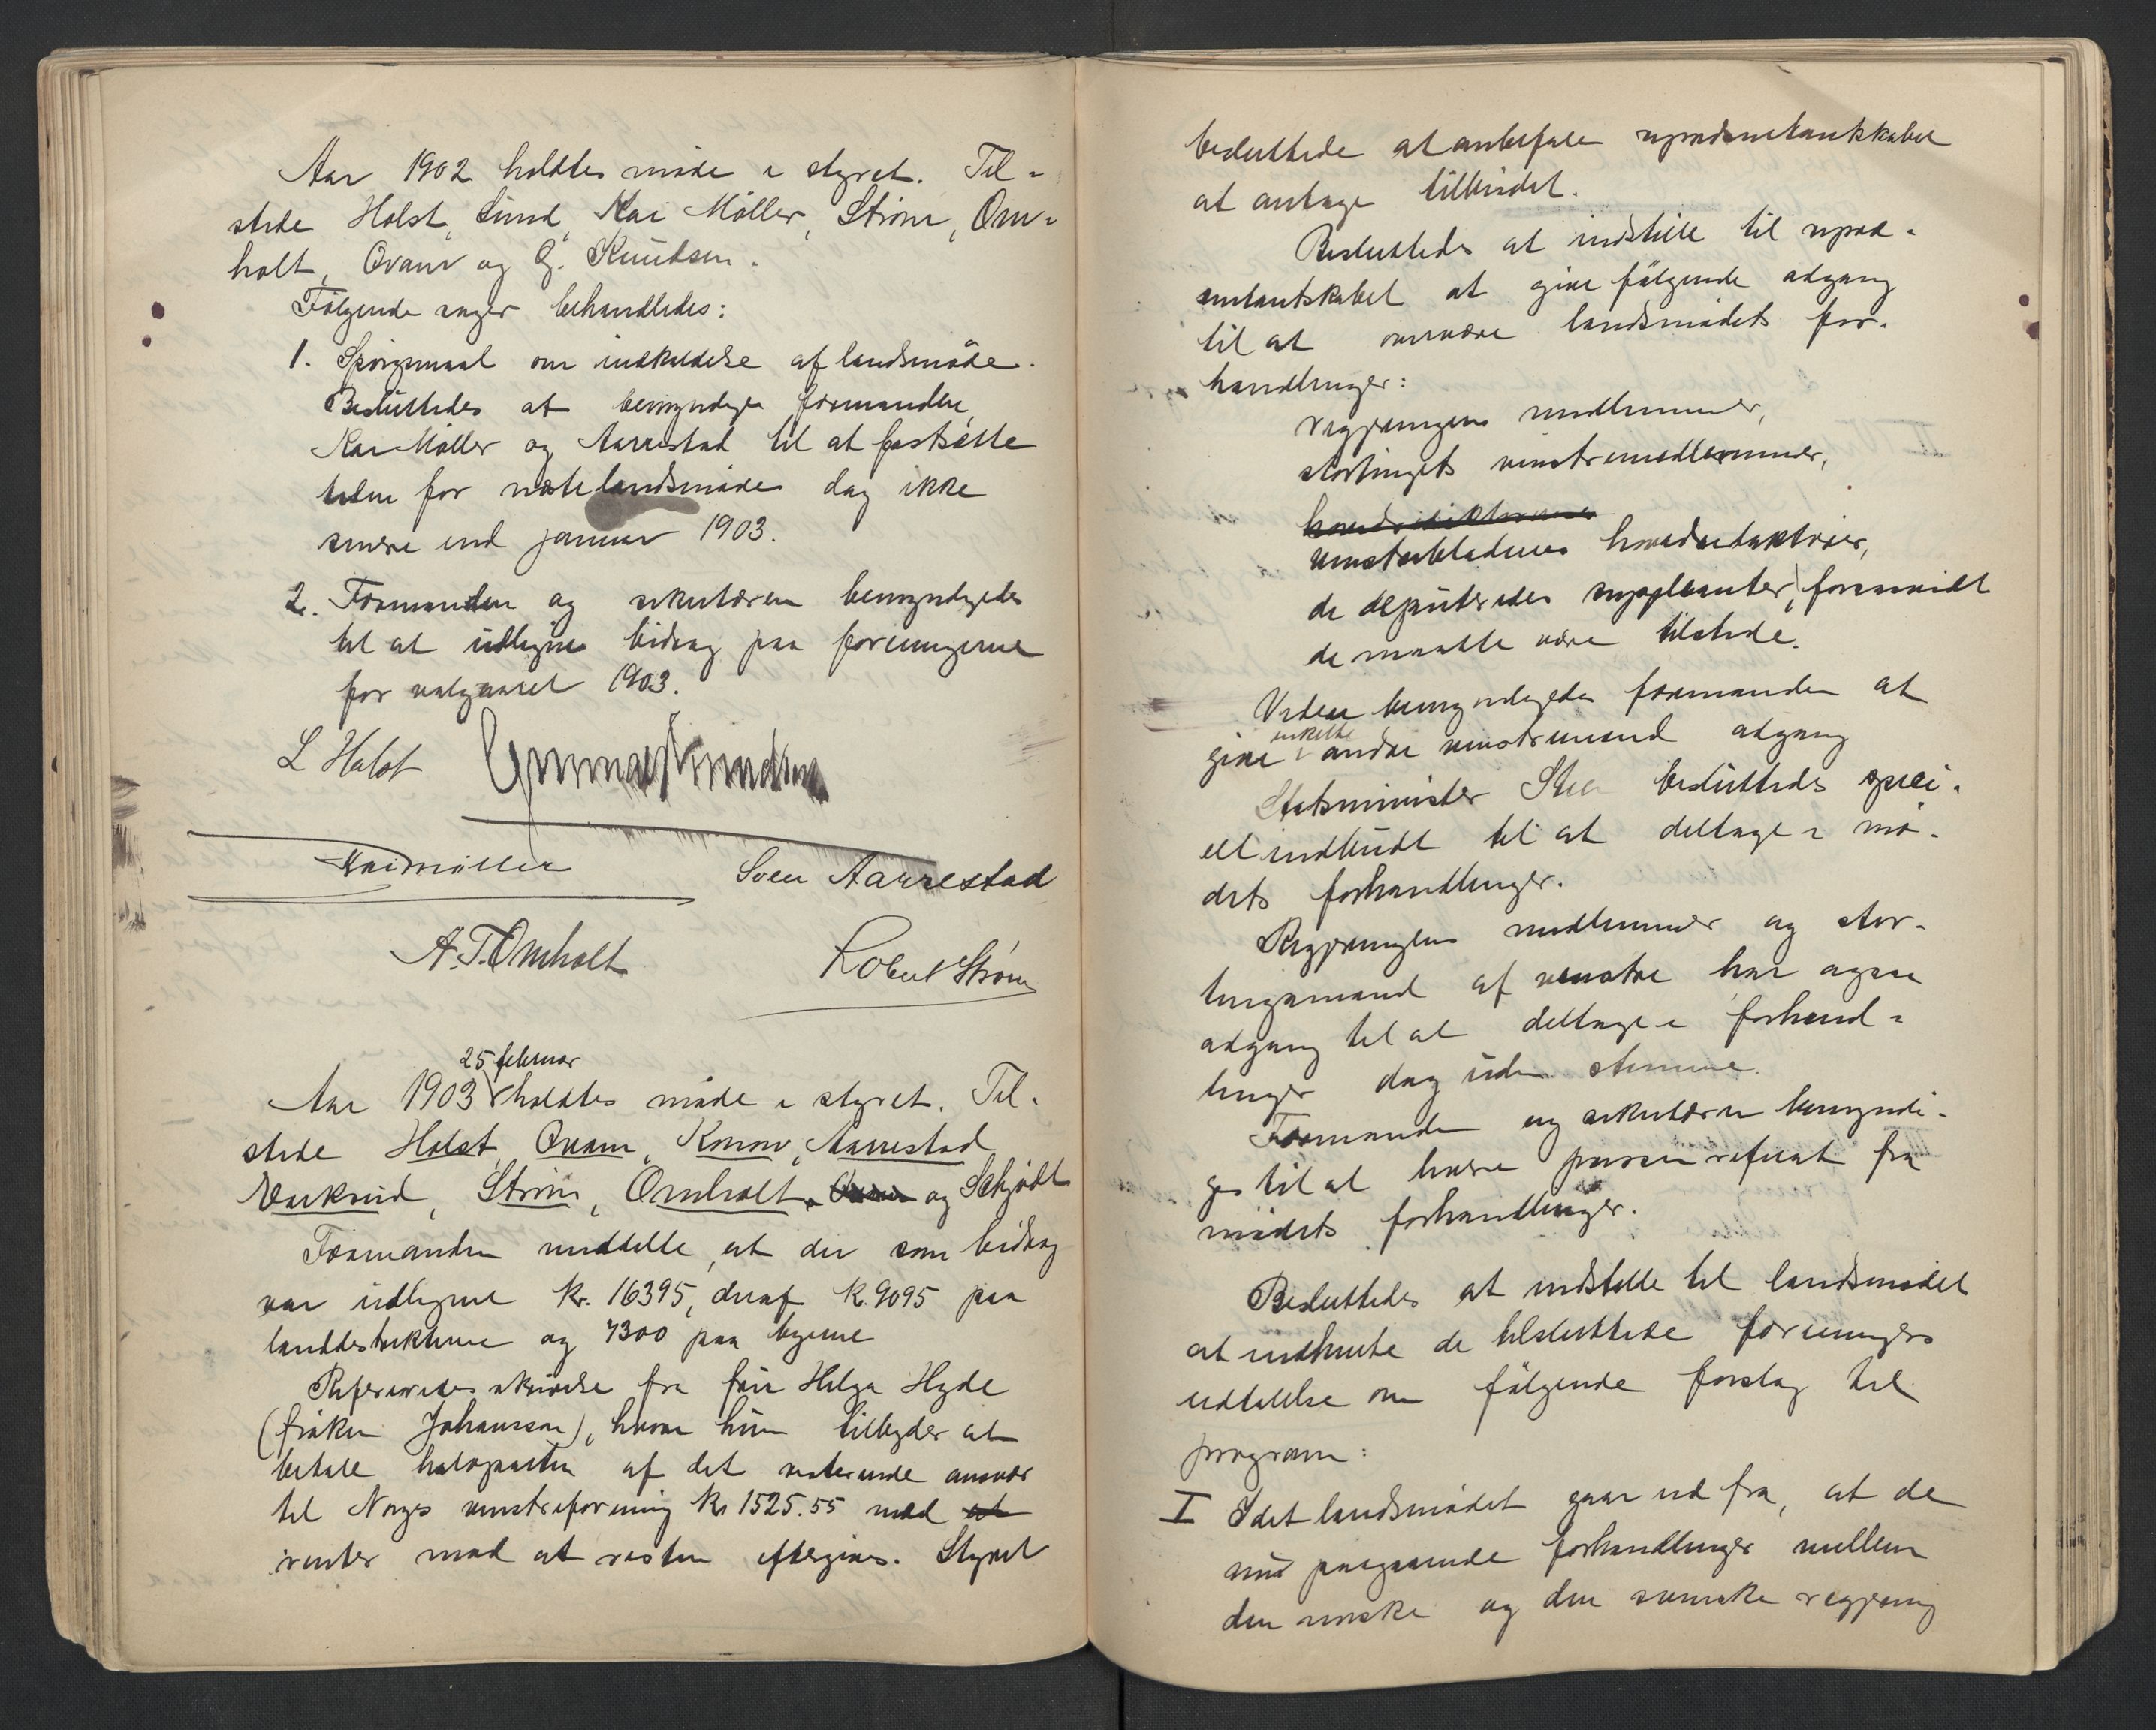 Aar 1902 holdtes møde i styret. Til-
stede Holst, Lund, Kai Møller, Strøm, Om-
holt, Qvam og G. Knudsen.
Følgende sager behandledes:
1. Spørgsmaal om indkaldelse af landsmøde.
Besluttedes at bemyndige formanden,
Kai Møller og Aarrestad til at fastsætte
tiden for næste landsmøde dog ikke
senere end januar 1903.
2. Formanden og sekretæren bemyndigedes
til at udligne bidrag paa foreningerne
for valgaaret 1903.
L Holst Gunnar Knudsen
Kai Møller Sven Aarrestad
A. T. Omholt Robert Strøm
25 februar
Aar 1903 holdtes møde i styret. Til-
stede Holst, Qvam, Konow, Aarrestad
Strøm, Omholt, og Schjødt
Formanden meddelte, at der som bidrag
var udlignet kr. 16395, deraf kr. 9095 paa
landdistrikterne og 7300 paa byerne
Refereredes skrivelse fra frue Helga Hyde
(frøken Johansson), hvori hun tilbyder at
betale halvparten af det resterende ansvar
til Norges venstreforening kr 1525.55 med at
renter mod at resten eftergives. Styret
besluttede at anbefale repræsentantskabet
at antage tilbudet.
Besluttedes at indstille til repræ-
sentantskabet at give følgende adgang
til at overvære landsmødets for-
handlinger:
regjeringens medlemmer,
stortingets venstremedlemmer,
hovedredaktørerne
venstrebladenes hovedredaktører,
de deputeredes suppleanter, forsaavidt
de maatte være tilstede.
Videre bemyndigedes formanden at
give enkelte andre venstremænd adgang
Statsminister Steen besluttedes speci-
elt indbudt til at deltage i mø-
dets forhandlinger.
Regjeringens medlemmer og stor-
tingsmænd af venstre har ogsaa
adgang til at deltage i forhand-
linger dog uden stemme.
Formanden og sekretæren bemyndi-
ges til at besørge presserefererat fra
mødets forhandlinger.
Besluttedes at indstille til landsmødet
at indhente de tilsluttede foreningers
udtalelse om følgende forslag til
program:
I Idet landsmødet gaar ud fra, at de
nu paagaaende forhandlinger mellem
den norske og den svenske regjering